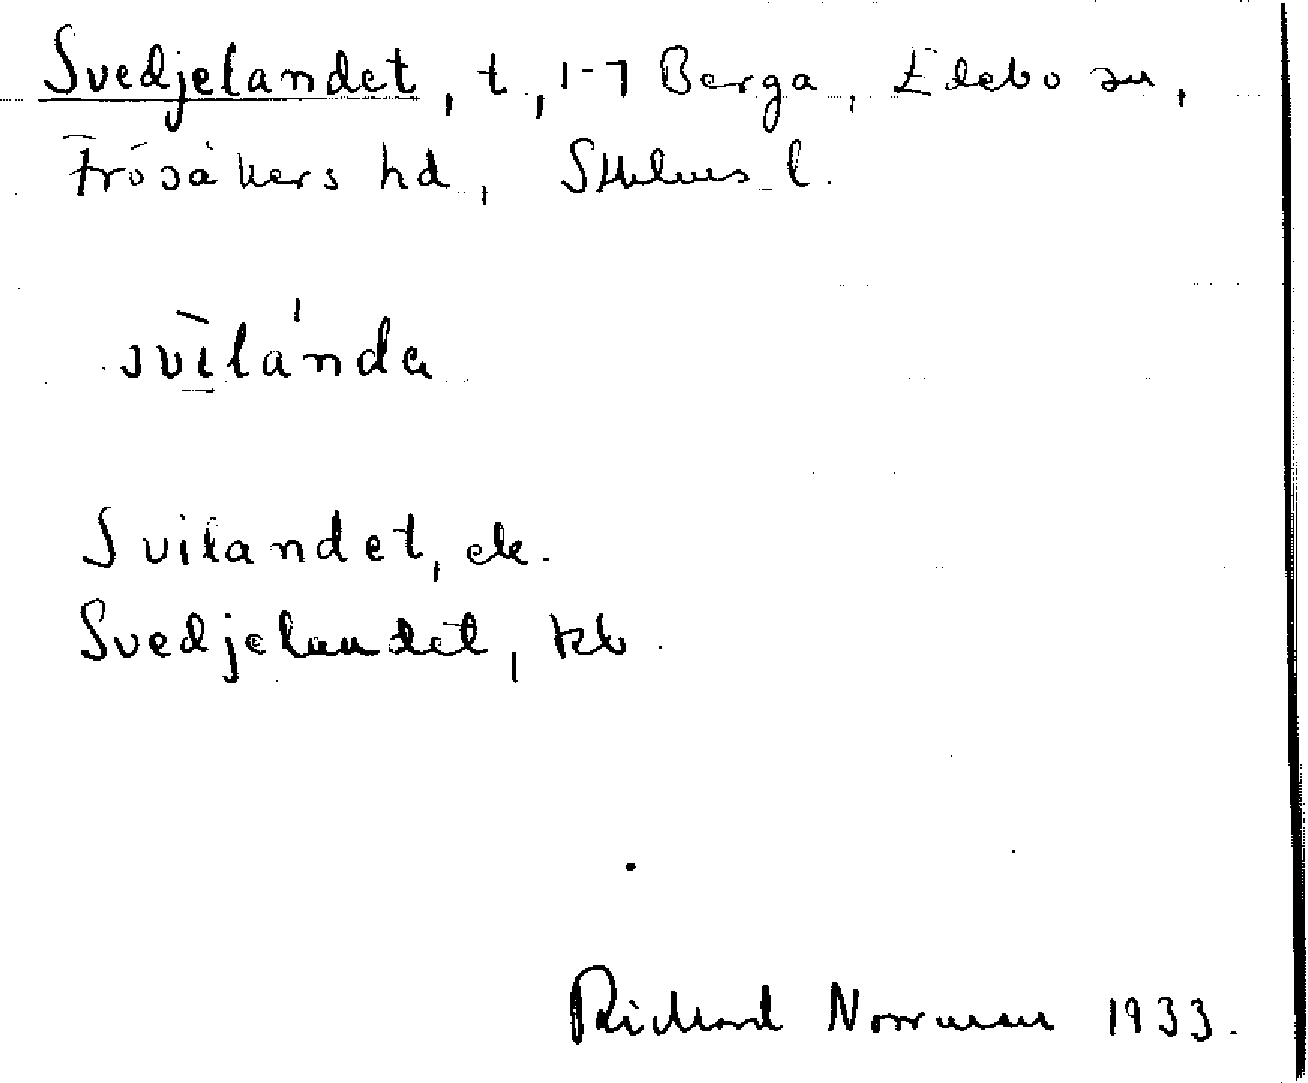 Svedjelandet, t., 1-7 Berga, Edebo sn,
Frösåkers hd, Sthlms l.
svìlánda
Svilandet, ek.
Svedjelandet, kb.
Richard Norrman 1933.